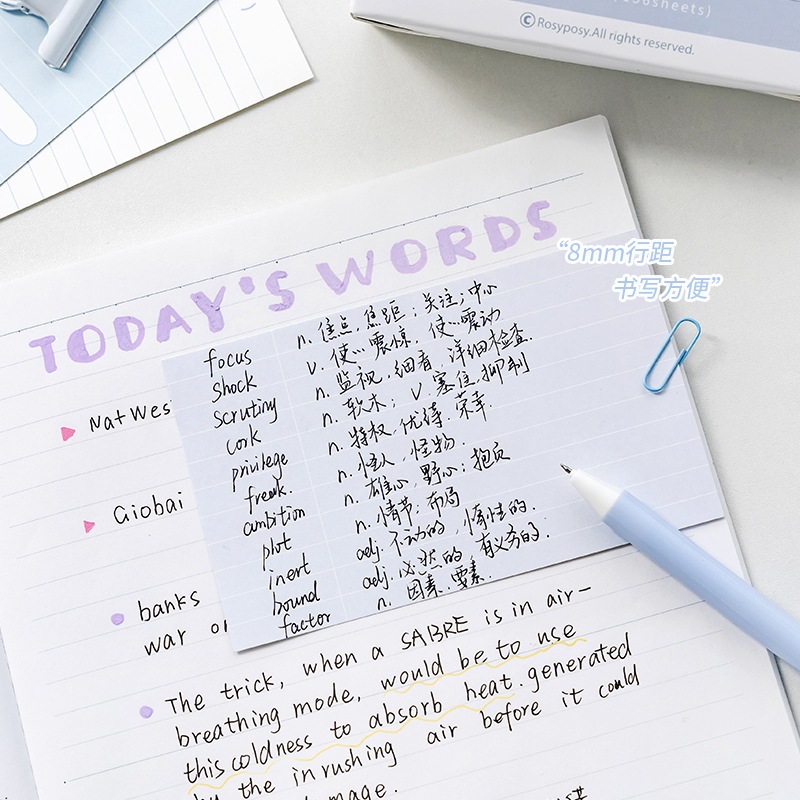 (156sheets)
©Rosyposy.All rights reserved.
TODAY'S WORDS
“8mm行距
书写方便”
focus n. 焦点,焦距;关注;中心
shock v. 使…震惊,使…震动
scrutiny n. 监视,细看,详细检查.
cork n. 软木; v.塞住,抑制
privilege n. 特权,优待,荣幸.
freak. n. 怪人,怪物.
ambition n. 雄心,野心;抱负
plot n. 情节;布局
inert adj. 不动的,惰性的.
bound adj. 必然的,有义务的.
factor n. 因素,要素.
NatWes
Giobai
banks
war or
The trick, when a SABRE is in air-
breathing mode, would be to use
this coldness to absorb heat.generated
by the inrushing air before it could
damage.